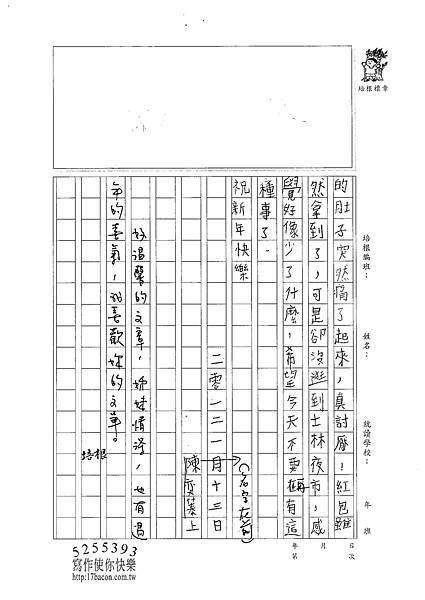 培根標章
培根編班：
姓名：
就讀學校：
年 班
年 月 第 次
的肚子突然痛了起來，真討厭！紅包雖
然拿到了，可是卻沒逛到士林夜市，感
覺好像少了什麼，希望今天不要再有這
種事了。
祝新年快樂
二零一二一月十三日
陳 上
好溫馨的文章，姊妹情深，也有過
年的喜氣，我喜歡妳的文筆。
培根
5255393
寫作使你快樂
http://17bacon.com.tw